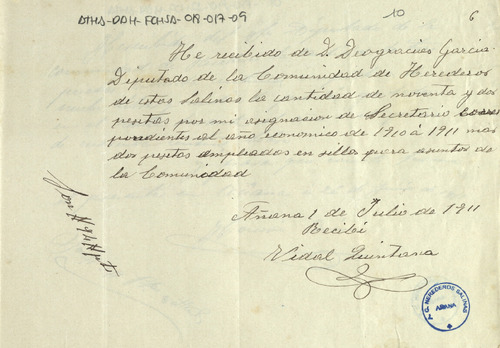 ATHA-DAH-FCHSA-018-017-09
10
6
He recibido de D. Deogracias Garcia
Diputado de la Comunidad de Herederos
de estas Salinas la cantidad de noventa y dos
pesetas por mi asignacion de Secretario corres
pondientes al año economico de 1910 á 1911 mas
dos pesetas empleadas en sellos para asuntos de
la Comunidad
Añana 1 de Julio de 1911
Recibi
Vidal Quintana
C. HEREDEROS SALINAS
AÑANA